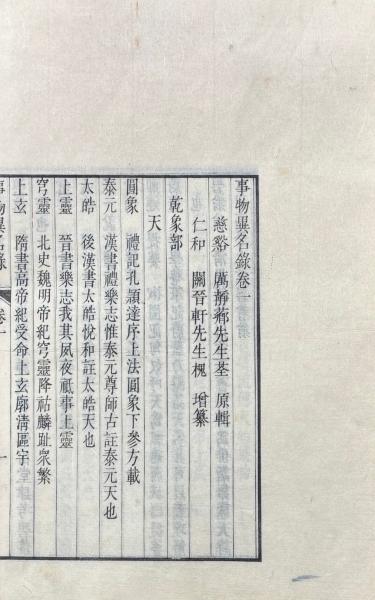 事物異名錄卷一
慈谿 厲靜薌先生荃 原輯
仁和 關晉軒先生槐 增纂
乾象部
天
圓象 禮記孔頴達序上法圓象下參方載
泰元 漢書禮樂志惟泰元尊師古註泰元天也
太皓 後漢書太皓悅和註太皓天也
上靈 晉書樂志我其夙夜祗事上靈
穹靈 北史魏明帝紀穹靈降祜麟趾衆繁
上玄 隋書高帝紀受命上玄廓清區宇
事物異名錄 卷一 一